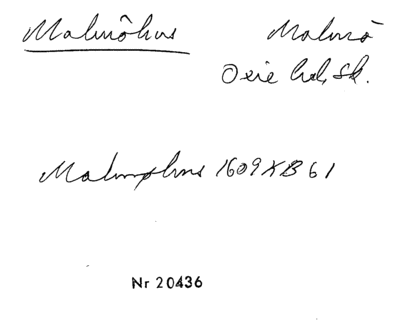 Malmöhus
Malmö
Oxie hd, Sk.
Malmøhus 1609 XB 61
Nr 20436